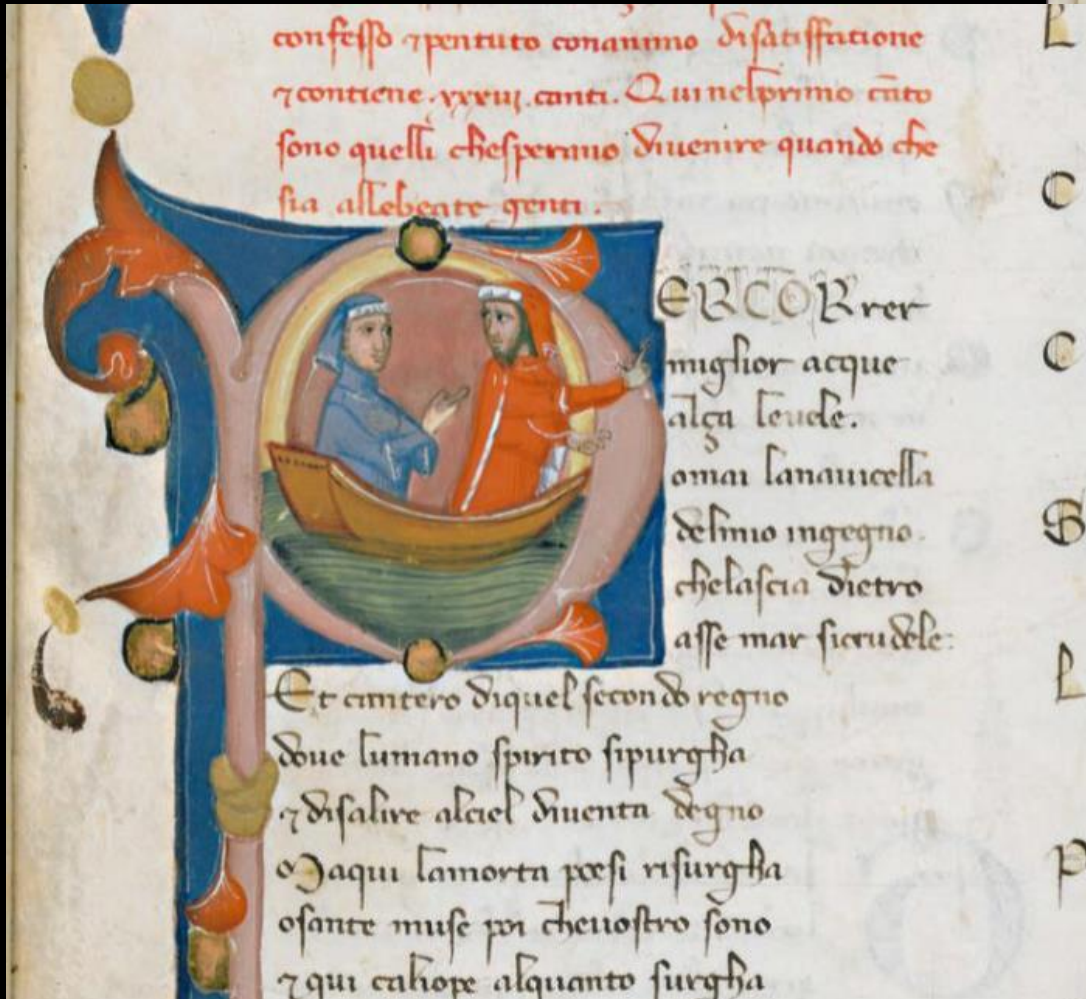 confesso ⁊pentuto conanimo disatisffatione
⁊contiene .xxxiij. canti. Qui nelprimo cāto
sono quelli chesperano diuenire quando che
sia allebeate genti.
PERCORrer
miglior acque
alça leuele.
omai lanauicella
delmio ingegno.
chelascia dietro
asse mar sicrudele:
Et cantero diquel secondo regno
doue lumano spirito sipurgha
⁊disalire alciel diuenta degno
Maqui lamorta poesi risurgha
osante muse poi cheuostro sono
⁊qui caliope alquanto surgha
L
C
C
S
L
P